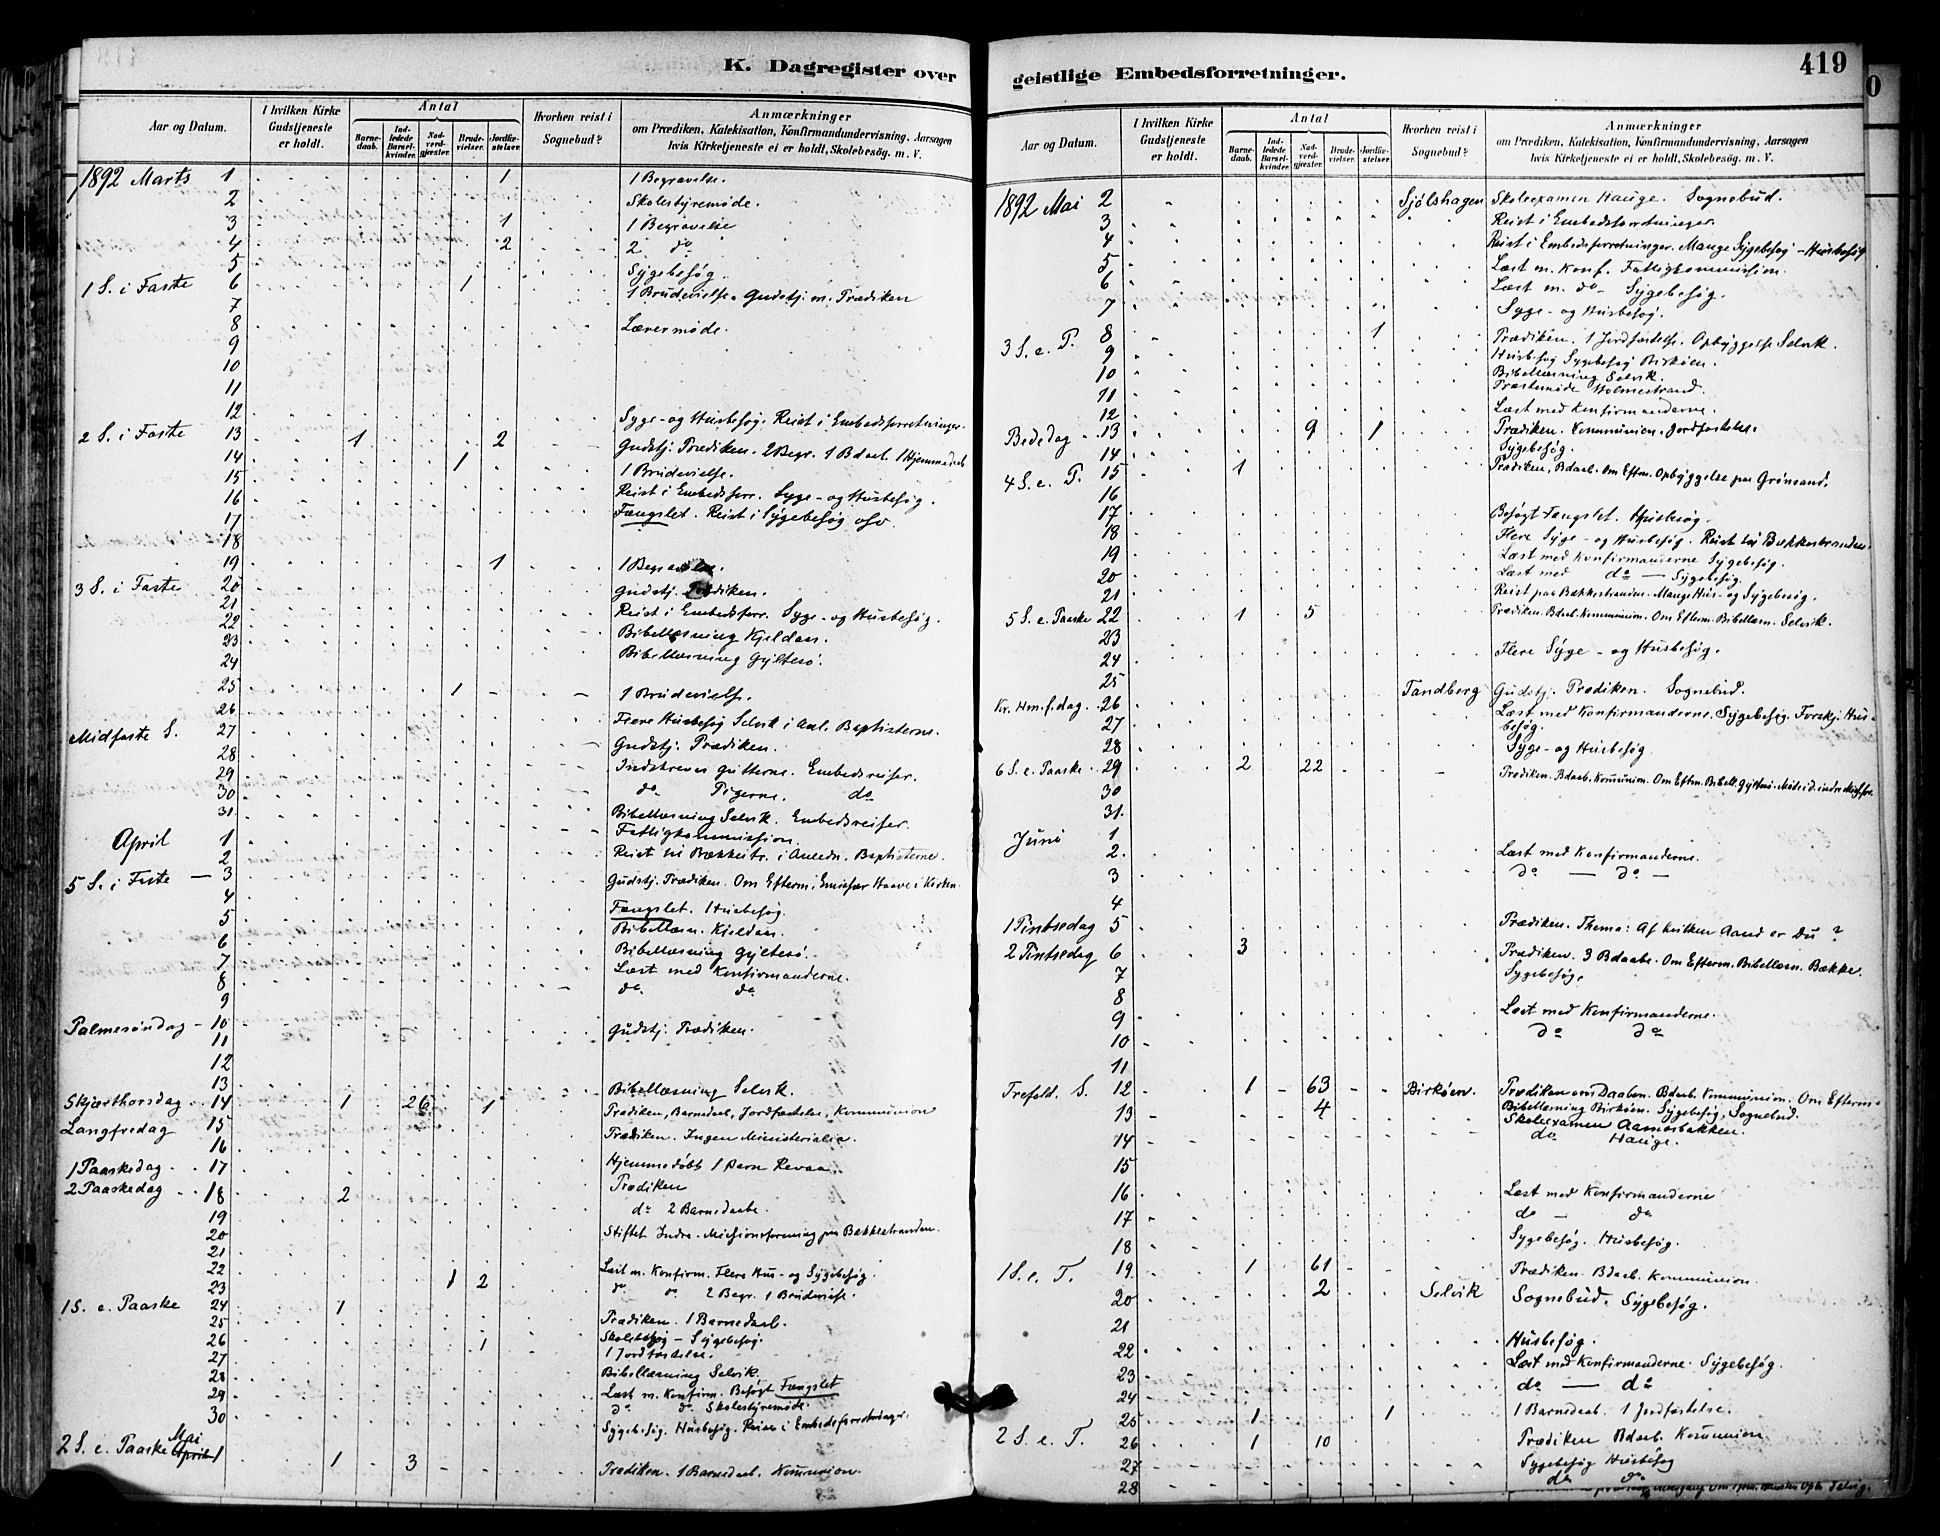 K. Dagregister over
Aar og Datum.
I hvilken Kirke Gudstjeneste er holdt.
Antal
Barne-daab.
Ind-ledede Barsel-kvinder.
Nad-verd-gjæster.
Brude-vielser.
Jordfæ-stelser.
Hvorhen reist i Sognebud?
Anmærkninger
om Prædiken, Katekisation, Konfirmandundervisning, Aarsagen
hvis Kirketjeneste ei er holdt, Skolebesøg. m. V.
1892 Marts 1 1 1 Begravelse.
2 Skolestyremøde.
3 1 1 Begravelse
4 2 2 do
5 Sygebesøg.
1 S. i Faste 6 1 1 Brudevielse. Gudstj. m. Prædiken
7
8 Lærermøde.
9
10
11
12 Syge- og Husbesøg. Reist i Embedsforretninger.
2 S. i Faste 13 1 2 Gudstj. Prædiken. 2 Begr. 1 Bdaab. 1 Hjemmedaab
14 1 1 Brudevielse.
15 Reist i Embedsforr. Syge- og Husbesøg.
16 Fængslet. Reist i Sygebesøg osv.
17
18
19 1 1 Begravelse.
3 S. i Faste 20 Gudstj. Prædiken.
21 Reist i Embedsforr. Syge- og Husbesøg.
22 Bibellæsning Kjeldaas.
23 Bibellæsning Gyltesø.
24
25 1 1 Brudevielse.
26 Flere Husbesøg Selvik i Anl. Baptisterne.
Midfaste S. 27 Gudstj. Prædiken.
28 Indskreves Gutterne. Embedsreiser.
29 do Pigerne. do
30 Bibellæsning Selvik. Embedsreiser.
31 Fattigkommission.
April 1 Reist til Bækkestr. i Anledn. Baptisterne.
2
5 S. i Faste — 3 Gudstj. Prædiken. Om Efterm. Emissær Haave i Kirken.
4 Fængslet. 1 Husbesøg.
5 Bibellæsn. Kjeldaas.
6 Bibellæsning Gyltesø.
7 Læst med Konfirmanderne.
8 do. do.
9
Palmesøndag - 10 Gudstj. Prædiken.
11
12
13 Bibellæsning Selvik.
Skjærthorsdag. 14 1 26 1 Prædiken, Barnedaab, Jordfæstelse, Kommunion
Langfredag 15 Prædiken. Ingen Ministerialia.
16 Hjemmedøbt 1 Barn Revaa.
1 Paaskedag. 17 Prædiken
2 Paaskedag 18 2 do 2 Barnedaabe.
19 Stiftet Indre-Missionsforening paa Bækkestranden.
20
21
22 Læst m. Konfirm. Flere Hus- og Sygebesøg.
23 1 2 do do 2 Begr. 1 Brudevielse.
1 S. e. Paaske 24 1 Prædiken. 1 Barnedaab.
25 Skolebesøg - Sygebesøg.
26 1 1 Jordfæstelse.
27 Bibellæsning Selvik.
28 Læst m. Konfirm. Besøgt Fængslet
29 do do Skolestyremøde.
30 Sygebesøg. Husbesøg. Reise i Embedsforretninger.
2 S. e. Paaske Mai April 1 1 3 Prædiken. 1 Barnedaab. Kommunion.
geistlige Embedsforretninger.
419
Aar og Datum.
I hvilken Kirke Gudstjeneste er holdt.
Antal
Barne-daab.
Ind-ledede Barsel-kvinder.
Nad-verd-gjæster.
Brude-vielser.
Jordfæ-stelser.
Hvorhen reist i Sognebud?
Anmærkninger
om Prædiken, Katekisation, Konfirmandundervisning, Aarsagen
hvis Kirketjeneste ei er holdt, Skolebesøg. m. V.
1892 Mai 2 Sjølshagen Skoleexamen Hauge. Sognebud.
3 Reist i Embedsforretninger.
4 Reist i Embedsforretninger. Mange Sygebesøg - Husbesøg
5 Læst m. Konf. Fattigkommission.
6 Læst m. do - Sygebesøg.
7 Syge- og Husbesøg.
3 S. e. P. 8 1 Prædiken. 1 Jordfæstelse. Opbyggelse Selvik.
9 Husbesøg Sygebesøg Birkøen.
10 Bibellæsning Selvik.
11 Præstemøde Holmestrand.
12 Læst med Konfirmanderne.
Bededag 13 9 1 Prædiken. Kommunion. Jordfæstelse.
14 Sygebesøg.
4 S. e. P. 15 1 Prædiken, Bdaab. Om Efterm. Opbyggelse paa Grønsand.
16
17 Besøgt Fængslet. Husbesøg.
18 Flere Syge- og Husbesøg. Reist til Bækkestranden.
19 Læst med Konfirmanderne Sygebesøg.
20 Læst med do — Sygebesøg.
21 Reist paa Bækkestranden. Mange Hus- og Sygebesøg.
5 S. e. Paaske 22 1 5 Prædiken. Bdaab. Kommunion. Om Efterm. Bibellæsn. Selvik.
23
24 Flere Syge- og Husbesøg.
25
Kr. Hm.f.dag. 26 Tandberg Gudstj. Prædiken. Sognebud.
27 Læst med Konfirmanderne. Sygebesøg. Forskj. Hus-
besøg.
28 Syge- og Husbesøg
6 S. e. Paaske 29 2 22 Prædiken. Bdaab. Kommunion. Om Efterm. Bibell. Gyltesø. Møde i d. indre Miss.for.
30
31.
Juni 1
2. Læst med Konfirmanderne.
3 do — do —
4
1 Pintsedag 5 Prædiken. Thema: Af hvilken Aand er Du?
2 Pintsedag 6 3 Prædiken. 3 Bdaabe. Om Efterm. Bibellæsn. Bække.
7 Sygebesøg.
8
9 Læst med Konfirmanderne.
10 do do
11
Trefold. S. 12 1 63 Birkøen. Prædiken om Daaben. Bdaab. Kommunion. Om Efterm.
13 4 Bibellæsning Birkøen. Sygebesøg. Sognebud.
Skoleexamen Aamosbakken.
14 do Hauge.
15
16 Læst med Konfirmanderne
17 do — do
18 Sygebesøg. Husbesøg.
1 S. e. T. 19 1 61 Prædiken. Bdaab. Kommunion.
20 2 Selvik Sognebud. Sygebesøg.
21
22 Husbesøg.
23 Læst med Konfirmanderne. Sygebesøg.
24 do — do
25 1 1 1 Barnedaab. 1 Jordfæstelse.
2 S. e. T. 26 1 10 Prædiken Bdaab. Kommunion
27 Sygebesøg Husbesøg
28 do do